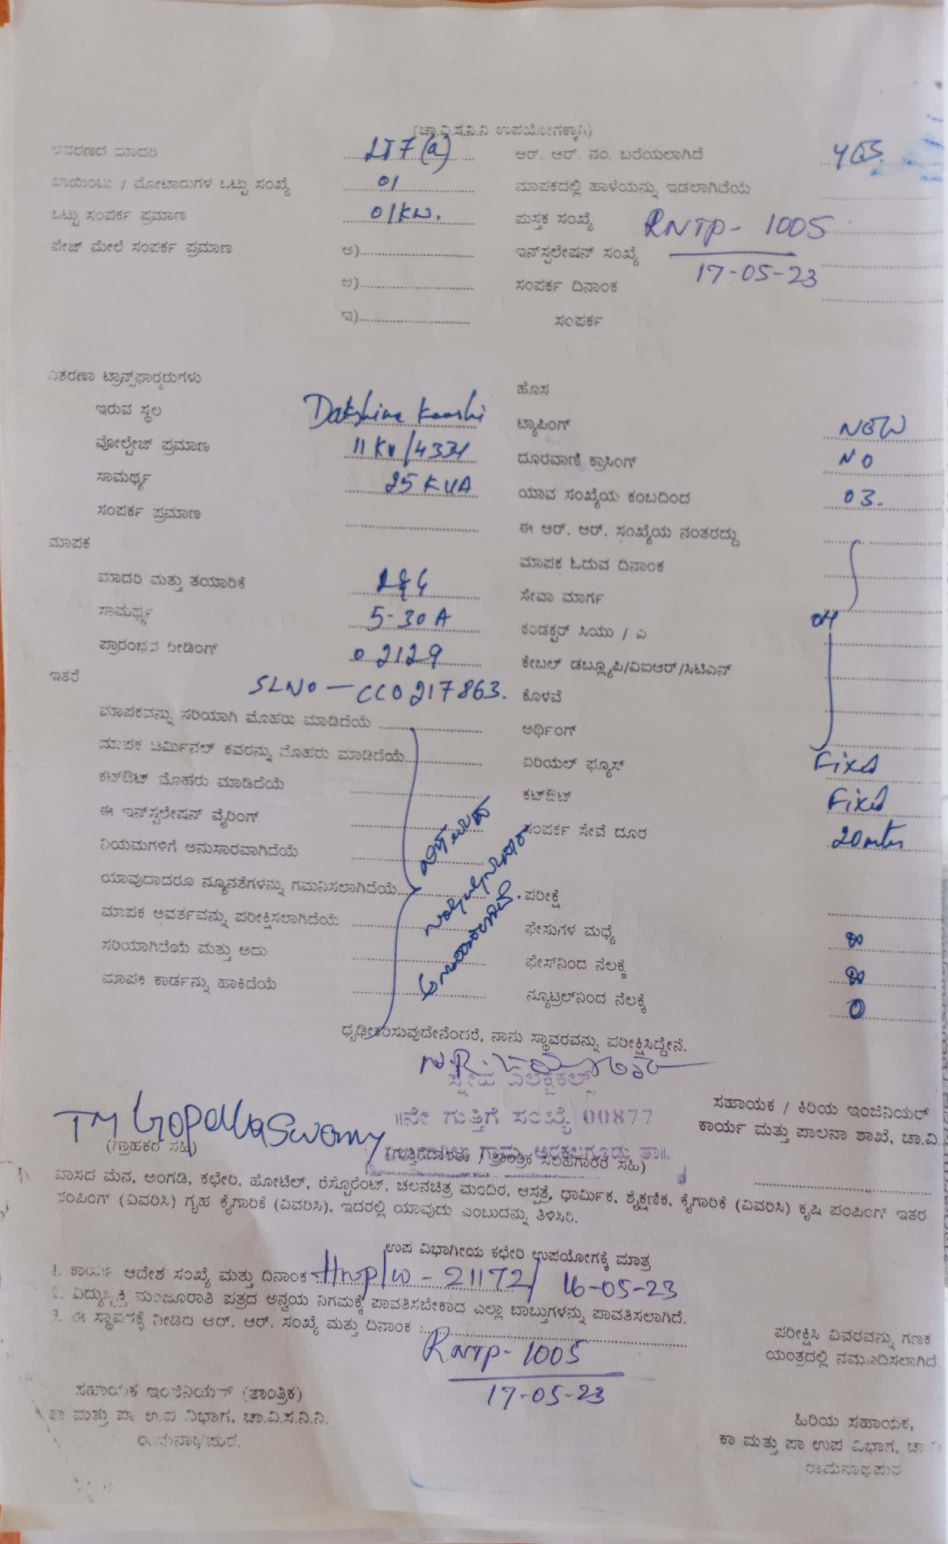 (ಚಾ.ವಿ.ಸ.ನಿ.ನಿ ಉಪಯೋಗಕ್ಕಾಗಿ)
ಆವರಣದ ಮಾದರಿ LT7(a) ಆರ್. ಆರ್. ನಂ. ಬರೆಯಲಾಗಿದೆ YES.
ಪಾಯಿಂಟು / ಮೋಟಾರುಗಳ ಒಟ್ಟು ಸಂಖ್ಯೆ 01 ಮಾಪಕದಲ್ಲಿ ಹಾಳೆಯನ್ನು ಇಡಲಾಗಿದೆಯೆ
ಒಟ್ಟು ಸಂಪರ್ಕ ಪ್ರಮಾಣ 01KW. ಪುಸ್ತಕ ಸಂಖ್ಯೆ RNTP- 1005
ಪೇಜ್ ಮೇಲೆ ಸಂಪರ್ಕ ಪ್ರಮಾಣ ಅ) ಇನ್‌ಸ್ಟಲೇಷನ್ ಸಂಖ್ಯೆ 17-05-23
ಆ) ಸಂಪರ್ಕ ದಿನಾಂಕ
ಇ) ಸಂಪರ್ಕ
ವಿತರಣಾ ಟ್ರಾನ್ಸ್‌ಫಾರ್ಮರುಗಳು ಹೊಸ
ಇರುವ ಸ್ಥಲ Dakshina Kaashi ಟ್ಯಾಪಿಂಗ್ NEW
ವೋಲ್ಟೇಜ್ ಪ್ರಮಾಣ 11 KV/433V ದೂರವಾಣಿ ಕ್ರಾಸಿಂಗ್ NO
ಸಾಮರ್ಥ್ಯ 25 KVA ಯಾವ ಸಂಖ್ಯೆಯ ಕಂಬದಿಂದ 03.
ಸಂಪರ್ಕ ಪ್ರಮಾಣ ಈ ಆರ್. ಆರ್. ಸಂಖ್ಯೆಯ ನಂತರದ್ದು
ಮಾಪಕ ಮಾಪಕ ಓದುವ ದಿನಾಂಕ
ಮಾದರಿ ಮತ್ತು ತಯಾರಿಕೆ L&G ಸೇವಾ ಮಾರ್ಗ OH
ಸಾಮರ್ಥ್ಯ 5-30 A ಕಂಡಕ್ಟರ್ ಸಿಯು / ಎ
ಪ್ರಾರಂಭದ ರೀಡಿಂಗ್ 02129 ಕೇಬಲ್ ಡಬ್ಲ್ಯೂಪಿ/ವಿಐಆರ್/ಸಿಟಿಎನ್
ಇತರೆ SLNO - CC0217863. ಕೊಳವೆ
ಮಾಪಕವನ್ನು ಸರಿಯಾಗಿ ಮೊಹರು ಮಾಡಿದೆಯೆ ಅರ್ಥಿಂಗ್
ಮಾಪಕ ಟರ್ಮಿನಲ್ ಕವರನ್ನು ಮೊಹರು ಮಾಡಿದೆಯೆ ಏರಿಯಲ್ ಫ್ಯೂಸ್ Fixed
ಕಟ್‌ಔಟ್ ಮೊಹರು ಮಾಡಿದೆಯೆ ಕಟ್‌ಔಟ್ Fixed
ಈ ಇನ್‌ಸ್ಟಲೇಷನ್ ವೈರಿಂಗ್ ಸಂಪರ್ಕ ಸೇವೆ ದೂರ 20mtrs
ನಿಯಮಗಳಿಗೆ ಅನುಸಾರವಾಗಿದೆಯೆ
ಯಾವುದಾದರೂ ನ್ಯೂನತೆಗಳನ್ನು ಗಮನಿಸಲಾಗಿದೆಯೆ ಪರೀಕ್ಷೆ
ಮಾಪಕ ಅವರ್ತವನ್ನು ಪರೀಕ್ಷಿಸಲಾಗಿದೆಯೆ ಫೇಸುಗಳ ಮಧ್ಯೆ ∞
ಸರಿಯಾಗಿದೆಯೆ ಮತ್ತು ಅದು ಫೇಸ್‌ನಿಂದ ನೆಲಕ್ಕೆ ∞
ಮಾಪಕ ಕಾರ್ಡನ್ನು ಹಾಕಿದೆಯೆ ನ್ಯೂಟ್ರಲ್‌ನಿಂದ ನೆಲಕ್ಕೆ 0
ಧೃಢೀಕರಿಸುವುದೇನೆಂದರೆ, ನಾನು ಸ್ಥಾವರವನ್ನು ಪರೀಕ್ಷಿಸಿದ್ದೇನೆ.
ಎಲೆಕ್ಟ್ರಿಕಲ್ಸ್
IIನೇ ಗುತ್ತಿಗೆ ಸಂಖ್ಯೆ 00877
ಗ್ರಾಮ, ಅರಕಲಗೂಡು ತಾ॥
ಸಹಾಯಕ / ಕಿರಿಯ ಇಂಜಿನಿಯರ್
ಕಾರ್ಯ ಮತ್ತು ಪಾಲನಾ ಶಾಖೆ, ಚಾ.ವಿ
TM Gopallaswamy
(ಗ್ರಾಹಕರ ಸಹಿ) (ಗುತ್ತಿಗೆದಾರರು / ತಾಂತ್ರಿಕ ಸಲಹಾಗಾರರ ಸಹಿ)
ವಾಸದ ಮನೆ, ಅಂಗಡಿ, ಕಛೇರಿ, ಹೋಟೆಲ್, ರೆಸ್ಟೊರೆಂಟ್, ಚಲನಚಿತ್ರ ಮಂದಿರ, ಆಸ್ಪತ್ರೆ, ಧಾರ್ಮಿಕ, ಶೈಕ್ಷಣಿಕ, ಕೈಗಾರಿಕೆ (ವಿವರಿಸಿ) ಕೃಷಿ ಪಂಪಿಂಗ್ ಇತರ
ಪಂಪಿಂಗ್ (ವಿವರಿಸಿ) ಗೃಹ ಕೈಗಾರಿಕೆ (ವಿವರಿಸಿ), ಇದರಲ್ಲಿ ಯಾವುದು ಎಂಬುದನ್ನು ತಿಳಿಸಿರಿ.
ಉಪ ವಿಭಾಗೀಯ ಕಛೇರಿ ಉಪಯೋಗಕ್ಕೆ ಮಾತ್ರ
1. ಕಾರ್ಯ ಆದೇಶ ಸಂಖ್ಯೆ ಮತ್ತು ದಿನಾಂಕ : Hnp/W - 21172/ 16-05-23
2. ವಿದ್ಯುಚ್ಛಕ್ತಿ ಮಂಜೂರಾತಿ ಪತ್ರದ ಅನ್ವಯ ನಿಗಮಕ್ಕೆ ಪಾವತಿಸಬೇಕಾದ ಎಲ್ಲಾ ಬಾಬ್ತುಗಳನ್ನು ಪಾವತಿಸಲಾಗಿದೆ.
3. ಈ ಸ್ಥಾವರಕ್ಕೆ ನೀಡಿದ ಆರ್. ಆರ್. ಸಂಖ್ಯೆ ಮತ್ತು ದಿನಾಂಕ :
RNTP- 1005
17-05-23
ಪರೀಕ್ಷಿಸಿ ವಿವರವನ್ನು ಗಣಕ
ಯಂತ್ರದಲ್ಲಿ ನಮೂದಿಸಲಾಗಿದೆ.
ಸಹಾಯಕ ಇಂಜಿನಿಯರ್ (ತಾಂತ್ರಿಕ)
ಕಾ ಮತ್ತು ಪಾ ಉಪ ವಿಭಾಗ, ಚಾ.ವಿ.ಸ.ನಿ.ನಿ.
ರಾಮನಾಥಪುರ.
ಹಿರಿಯ ಸಹಾಯಕ,
ಕಾ ಮತ್ತು ಪಾ ಉಪ ವಿಭಾಗ, ಚಾ
ರಾಮನಾಥಪುರ